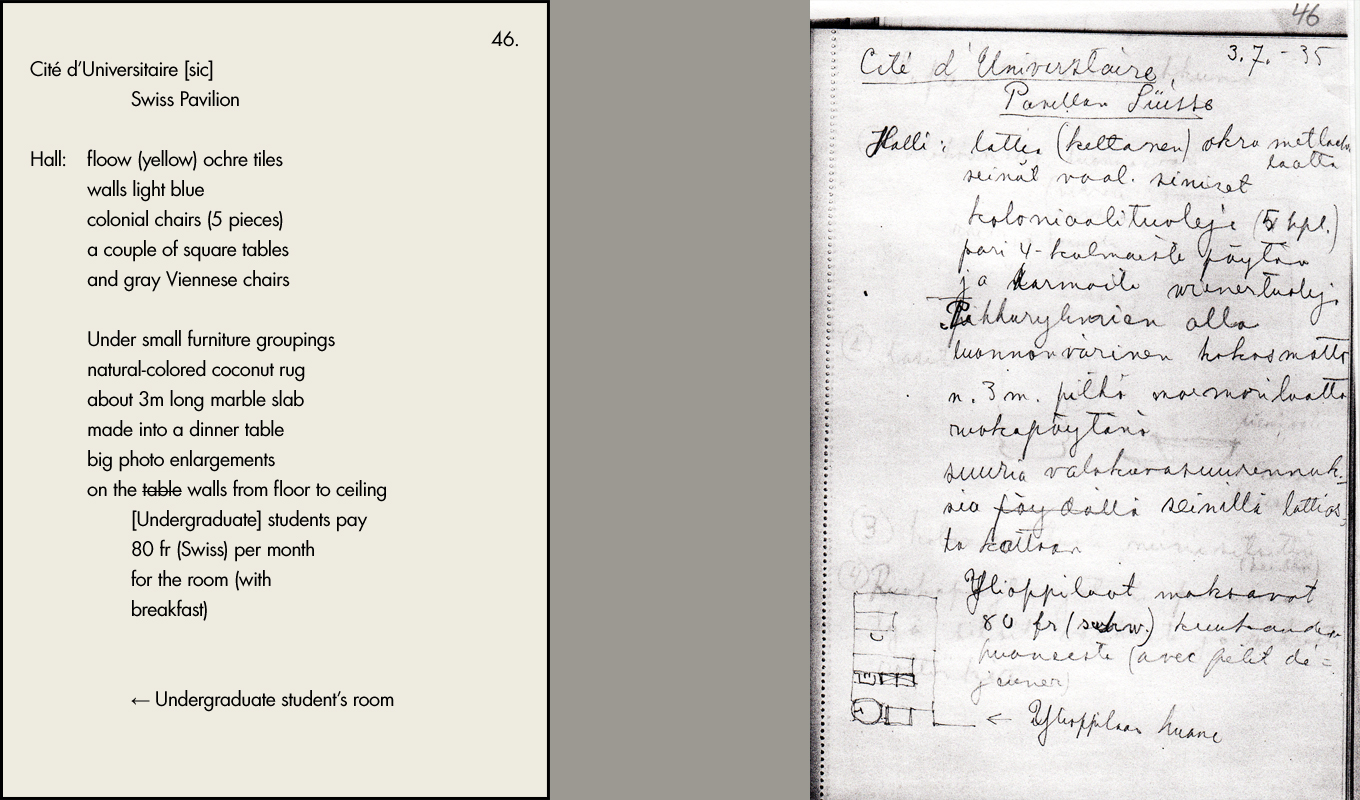 46.
Cité d'Universitaire [sic]
Swiss Pavilion
Hall: floow (yellow) ochre tiles
walls light blue
colonial chairs (5 pieces)
a couple of square tables
and gray Viennese chairs
Under small furniture groupings
natural-colored coconut rug
about 3m long marble slab
made into a dinner table
big photo enlargements
on the table walls from floor to ceiling
[Undergraduate] students pay
80 fr (Swiss) per month
for the room (with
breakfast)
← Undergraduate student's room
46
3.7.-35
Cité d'Universitaire
Pavillon Suisse
Halli: lattia (keltanen) okra
laatta
seinät vaal. siniset
koloniaalituoleja (5 kpl.)
pari 4-kulmaista pöytää
ja harmaita wienertuoleja
Pikkuryhmien alla
luonnonvärinen kokosmatto
n. 3 m. pitkä marmorilaatta
ruokapöytänä
suuria valokuvasuurennuk-
sia pöydällä seinillä lattias-
ta kattoon
Ylioppilaat maksavat
80 fr (schw.) kuukaudessa
huoneesta (avec petit dé-
jeuner)
← Ylioppilaan huone